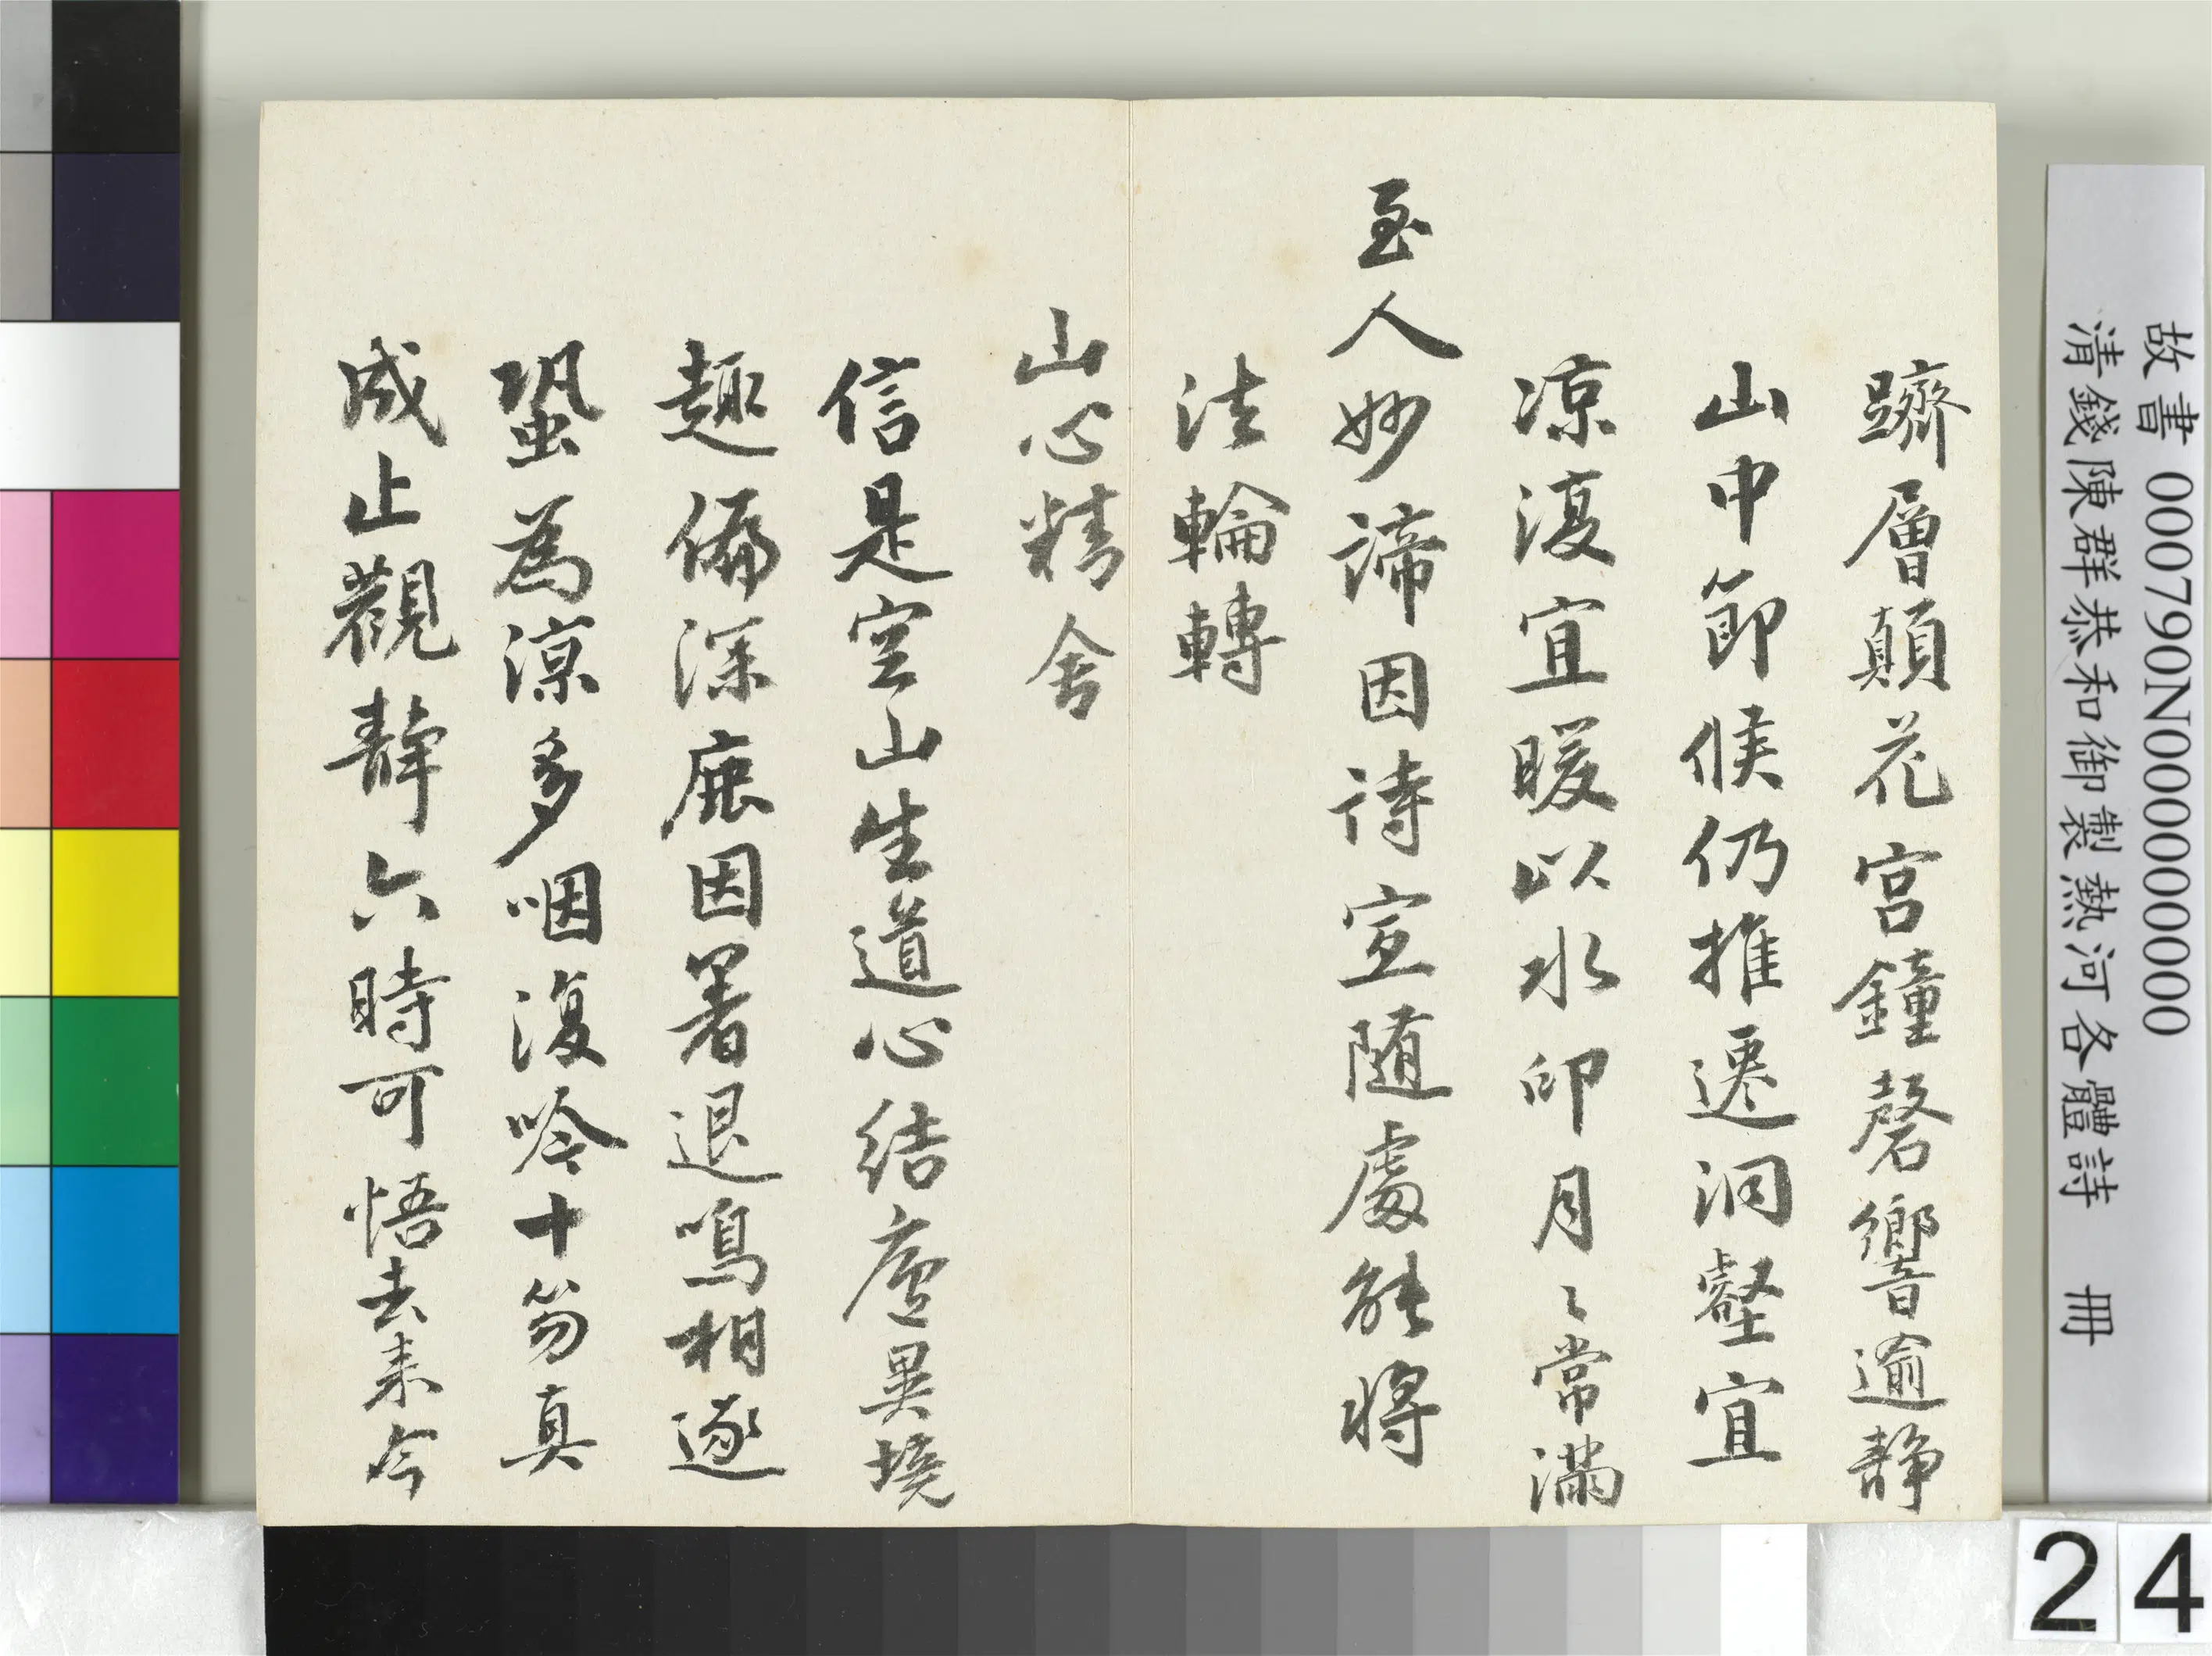 躋層顛花宮鐘磬響逾靜
山中節候仍推遷洞壑宜
涼復宜暖以水印月〻常滿
至人妙諦因詩宣随處能將
法輪轉
山心精舍
信是空山生道心結廬異境
趣偏深鹿因暑退鳴相逐
蛩為涼多咽復吟十笏真
成止觀靜六時可悟去来今
故書 000790N000000000
清錢陳群恭和御製熱河各體詩 冊
24